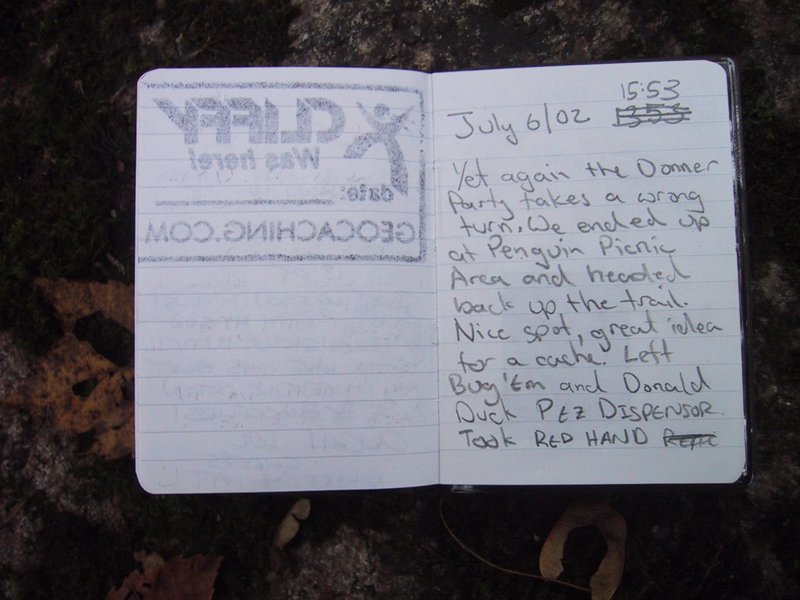 CLIFFY
Was here!
date:
GEOCACHING.COM
15:53
July 6/02
Yet again the Donner
Party takes a wrong
turn. We ended up
at Penguin Picnic
Area and headed
back up the trail.
Nice spot, great idea
for a cache. Left
Bug 'Em and Donald
Duck PEZ DISPENSOR.
Took RED HAND